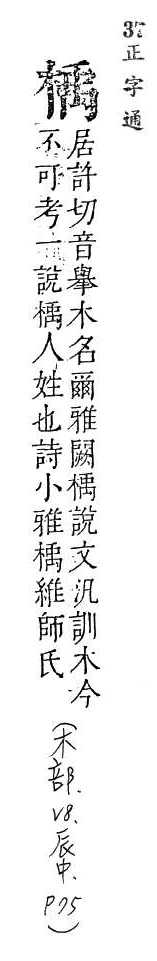 37
正字通
楀
居許切音擧木名爾雅闕楀說文汎訓木今
不可考一說楀人姓也詩小雅楀維師氏
(木部. V8. 辰中. P75)